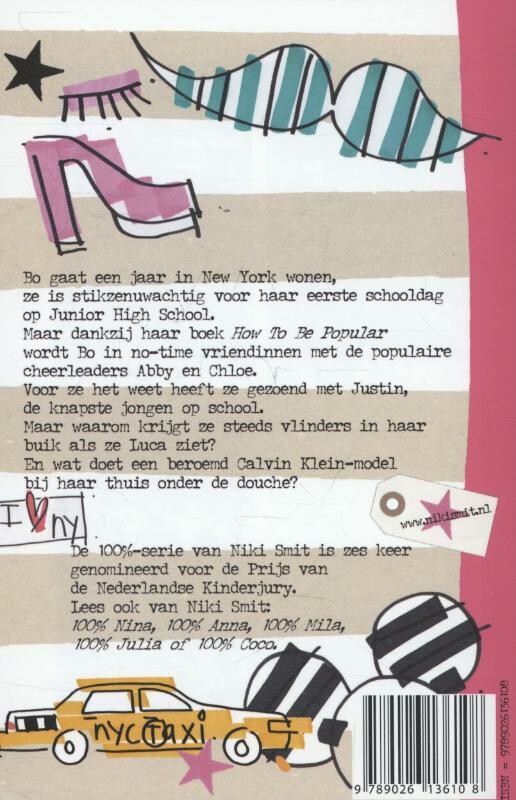 Bo gaat een jaar in New York wonen,
ze is stikzenuwachtig voor haar eerste schooldag
op Junior High School.
Maar dankzij haar boek How To Be Popular
wordt Bo in no-time vriendinnen met de populaire
cheerleaders Abby en Chloe.
Voor ze het weet heeft ze gezoend met Justin,
de knapste jongen op school.
Maar waarom krijgt ze steeds vlinders in haar
buik als ze Luca ziet?
En wat doet een beroemd Calvin Klein-model
bij haar thuis onder de douche?
www.nikismit.nl
I ny
De 100%-serie van Niki Smit is zes keer
genomineerd voor de Prijs van
de Nederlandse Kinderjury.
Lees ook van Niki Smit:
100% Nina, 100% Anna, 100% Mila,
100% Julia of 100% Coco.
nyc Taxi
ISBN = 9789026136108
9 789026 136108